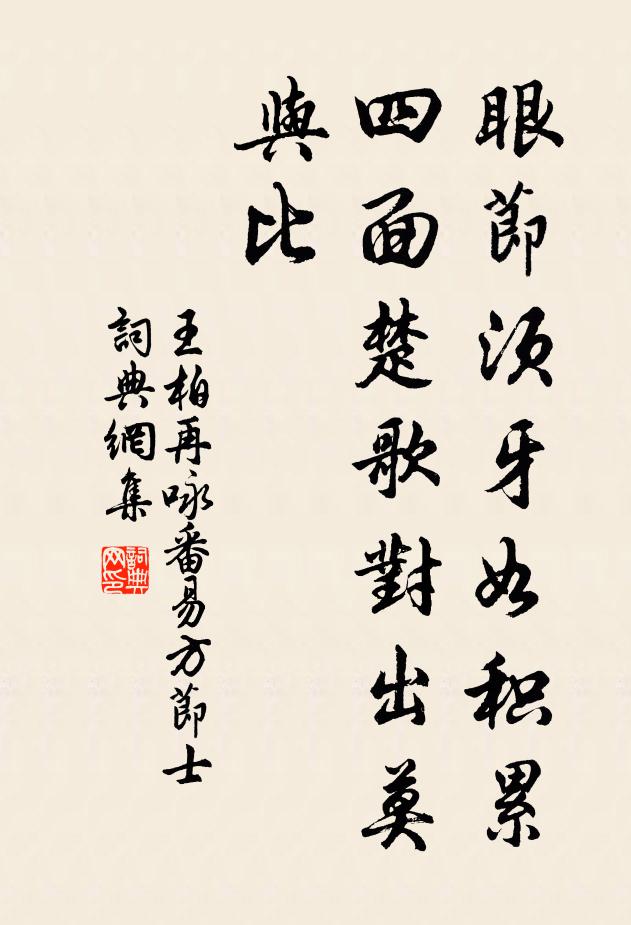 眼節須牙如积累
四面楚歌對出莫
與比
王柏再咏番易方節士
詞典網集
詞典网印